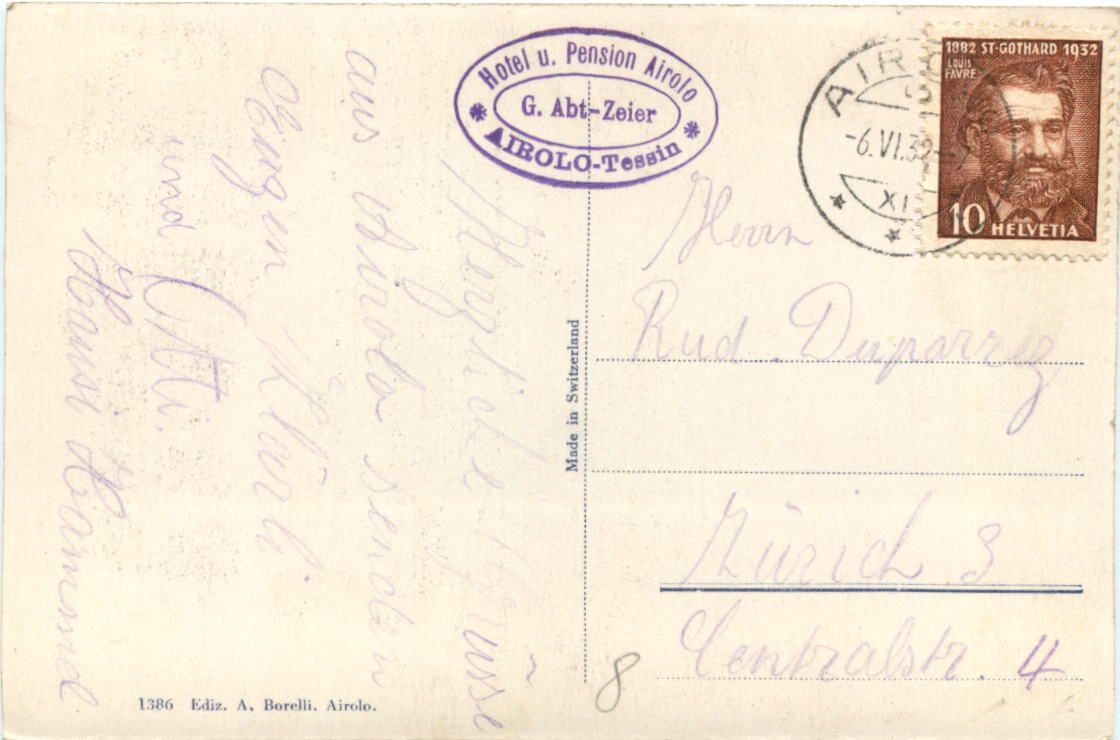 Hotel u. Pension Airolo
G. Abt-Zeier
AIROLO-Tessin
AIRO
-6.VI.32
XI
1882 ST-GOTHARD 1932
LOUIS
FAVRE
10 HELVETIA
Herzliche Grüsse
aus Airolo senden
Klärli
und Otti.
Hansi Hammel
Made in Switzerland
Herrn
Rud. Duparrez
Zürich 3
Centralstr. 4
8
1386 Ediz. A. Borelli. Airolo.